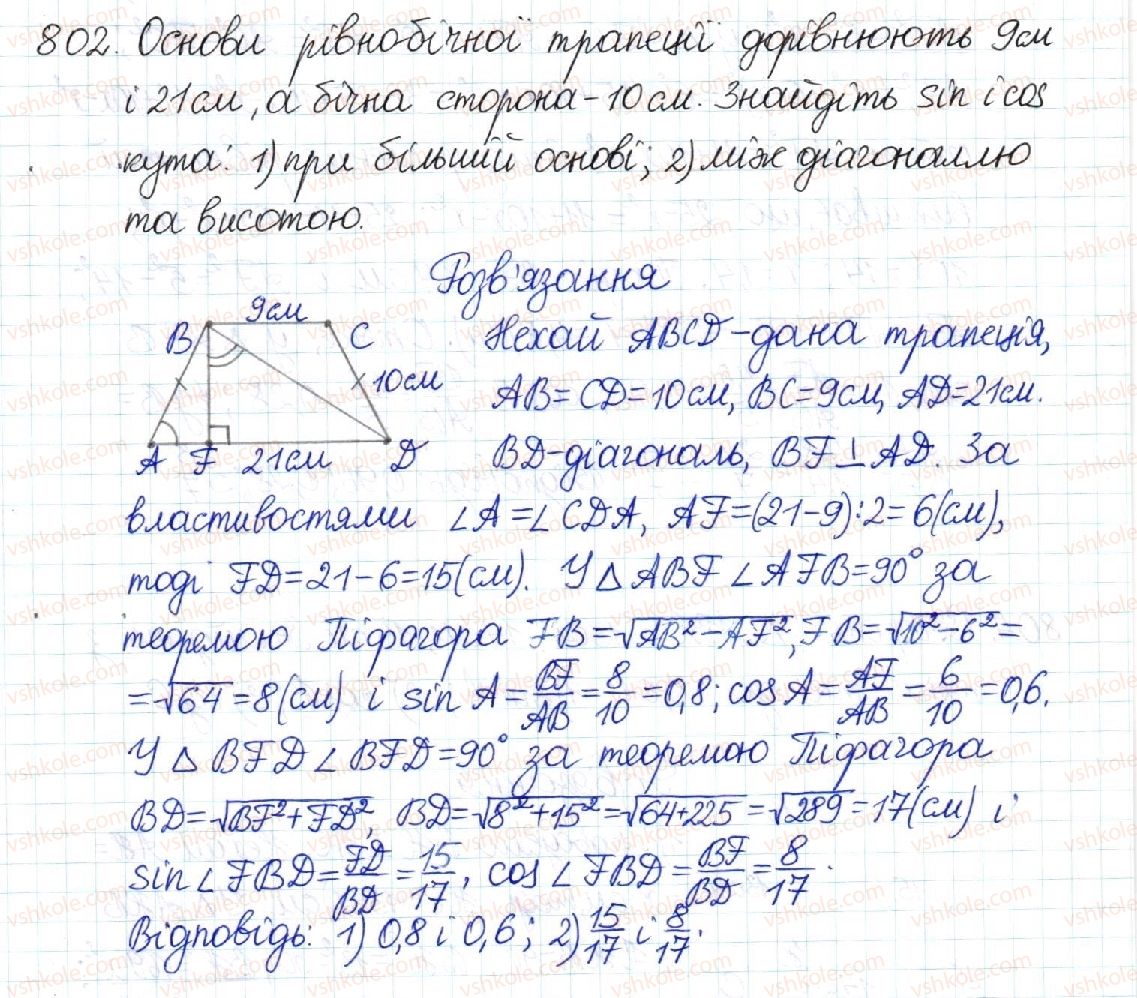 802. Основи рівнобічної трапеції дорівнюють 9см
і 21см, а бічна сторона – 10см. Знайдіть sin і cos
кута: 1) при більшій основі; 2) між діагоналлю
та висотою.
Розв'язання
9см
B C
10см
A F 21см D
Нехай ABCD – дана трапеція,
AB = CD = 10см, BC = 9см, AD = 21см.
BD – діагональ, BF ⊥ AD. За
властивостями ∠A = ∠CDA, AF = (21-9):2 = 6(см),
тоді FD = 21 - 6 = 15(см). У △ABF ∠AFB = 90° за
теоремою Піфагора FB = √(AB² - AF²), FB = √(10² - 6²) =
= √64 = 8(см) і sin A = BF/AB = 8/10 = 0,8; cos A = AF/AB = 6/10 = 0,6.
У △BFD ∠BFD = 90° за теоремою Піфагора
BD = √(BF² + FD²), BD = √(8² + 15²) = √(64+225) = √289 = 17(см) і
sin∠FBD = FD/BD = 15/17, cos∠FBD = BF/BD = 8/17.
Відповідь: 1) 0,8 і 0,6; 2) 15/17 і 8/17.
vshkole.com